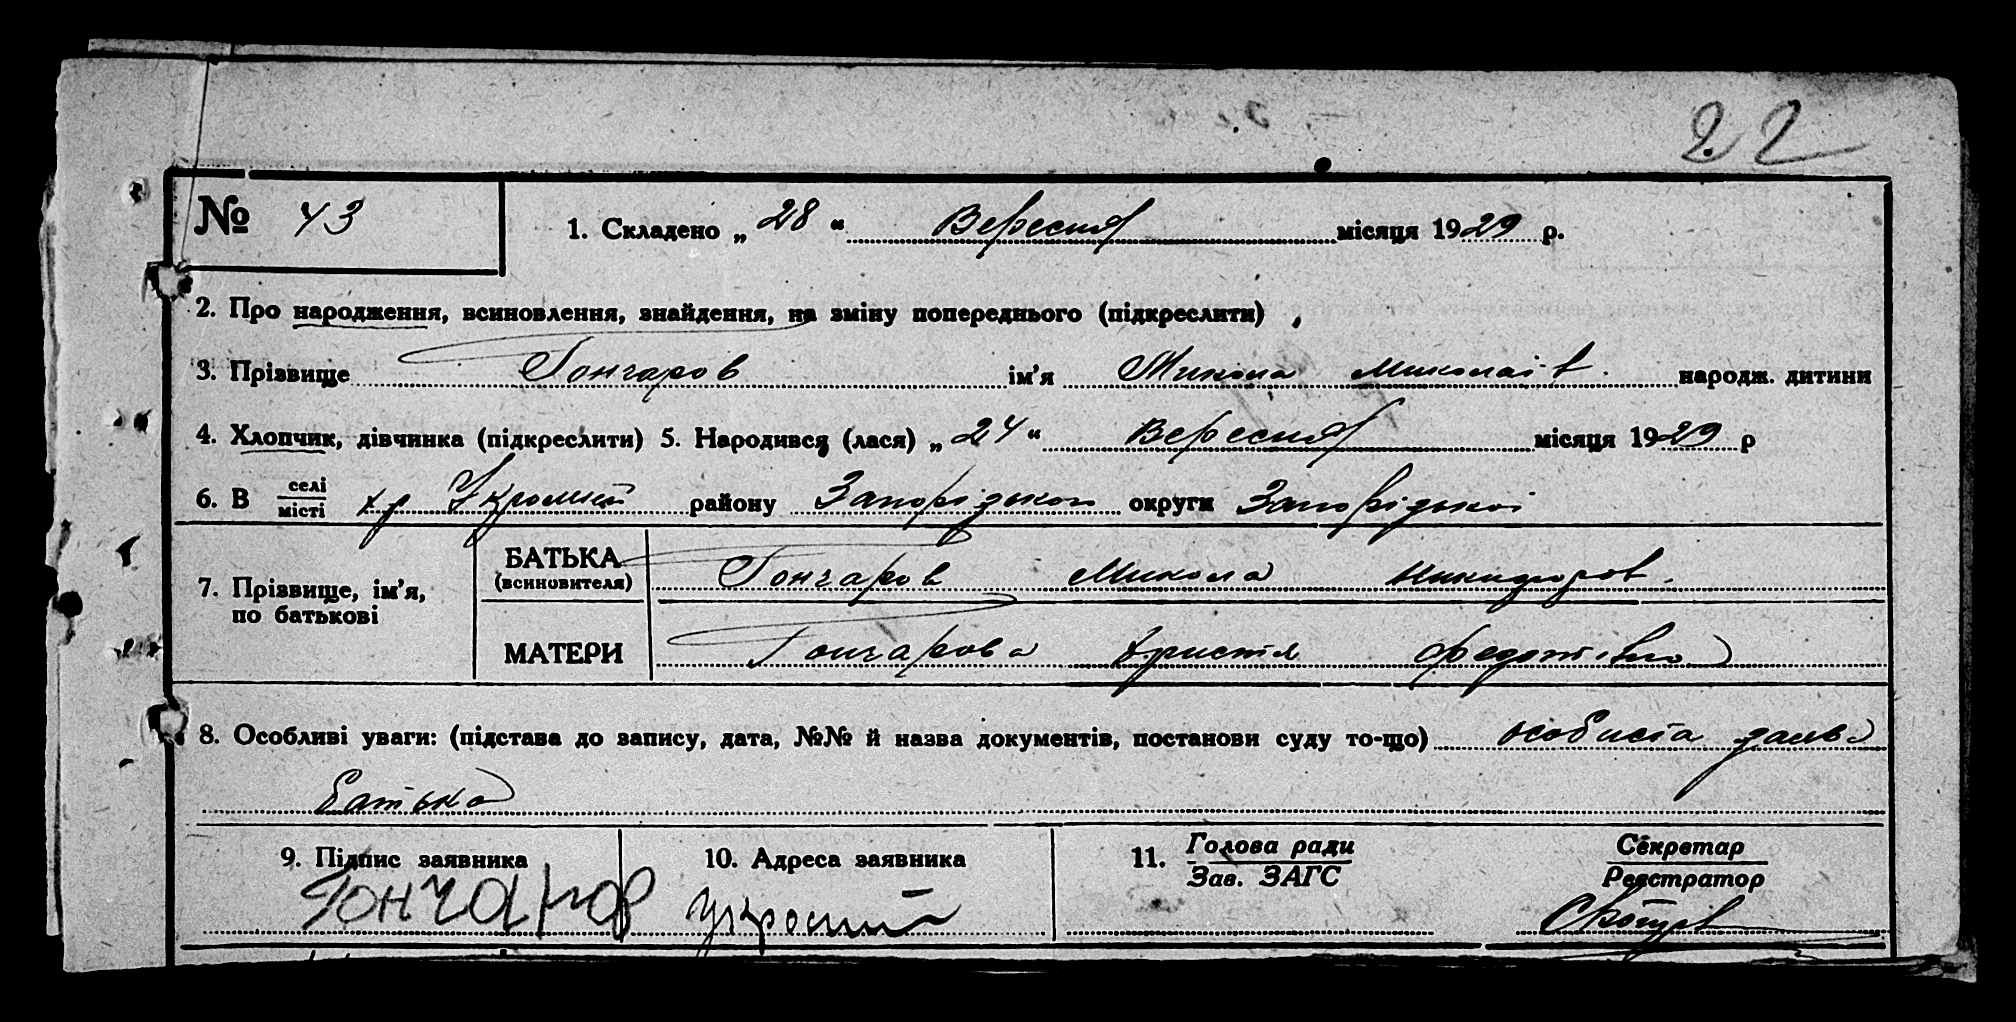 22
№ 43
1. Складено „28“ Вересня місяця 1929 р.
2. Про народження, всиновлення, знайдення, на зміну попереднього (підкреслити)
3. Прізвище Гончаров ім’я Микола Миколаів. народж. дитини
4. Хлопчик, дівчинка (підкреслити) 5. Народився (лася) „24“ Вересня місяця 1929 р
6. В селі місті хр Укромний району Запорізького округи Запорізької
7. Прізвище, ім’я, по батькові
БАТЬКА (всиновителя) Гончаров Микола Никифоров.
МАТЕРИ Гончарова Христя Федотівна
8. Особливі уваги: (підстава до запису, дата, №№ й назва документів, постанови суду то-що) особиста заява
батька
9. Підпис заявника 10. Адреса заявника 11. Голова ради Секретар
Зав. ЗАГС Реєстратор
Гончаров